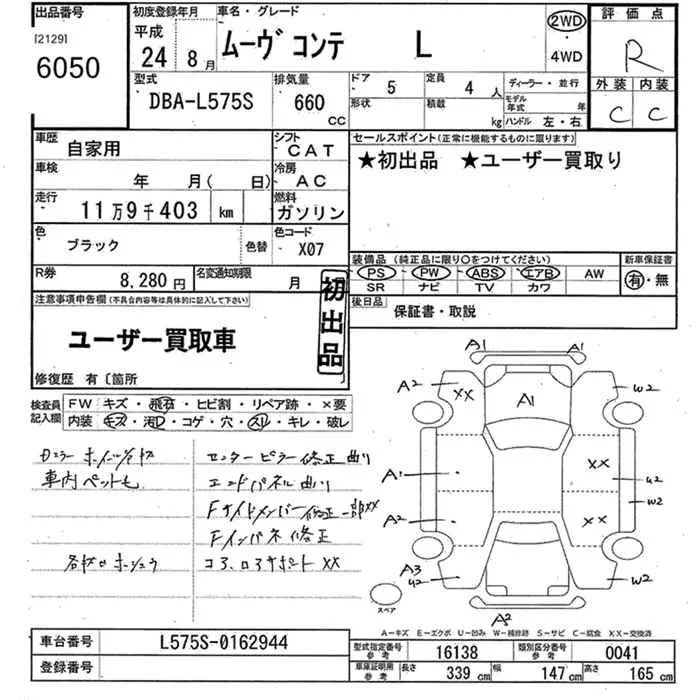 出品番号
[2129]
6050
初度登録年月
平成
24年 8月
車名・グレード
ムーヴ コンテ L
2WD
・
4WD
評価点
R
外装 内装
C C
型式
DBA-L575S
排気量
660 CC
ドア 5
定員 4人
ディーラー・並行
形状
積載 kg
モデル年式 年
ハンドル 左・右
車歴
自家用
シフト
CAT
車検
年 月( 日)
冷房
AC
走行
11万9千403 km
燃料
ガソリン
色
ブラック
色替
色コード
X07
R券
8,280円
名変通知期限 月
セールスポイント(正常に機能するものに限ります)
★初出品 ★ユーザー買取り
装備品 (純正品に限り○をつけてください)
PS PW ABS エアB AW
SR ナビ TV カワ
新車保証書
有・無
後日品
保証書・取説
注意事項申告欄(不具合内容等は具体的に記入して下さい)
ユーザー買取車
初出品
修復歴 有〔箇所
検査員記入欄
FW キズ・飛石・ヒビ割・リペア跡・×要
内装 キズ・汚レ・コゲ・穴・スレ・キレ・破レ
車内ペット毛
センターピラー修正曲り
エンドパネル曲り
Fサイドメンバー修正一部XX
Fインパネ修正
コア、ロアサポートXX
A1 A1
A2 XX A1 W2
A1 XX U2
W2
A2 XX
A3
U2 W2
A2
スペア
A-キズ E-エクボ U-凹み W-補修跡 S-サビ C-腐食 XX-交換済
車台番号
L575S-0162944
登録番号
型式指定番号 参考
16138
類別区分番号 参考
0041
車庫証明用 参考
長さ 339 cm
幅 147 cm
高さ 165 cm